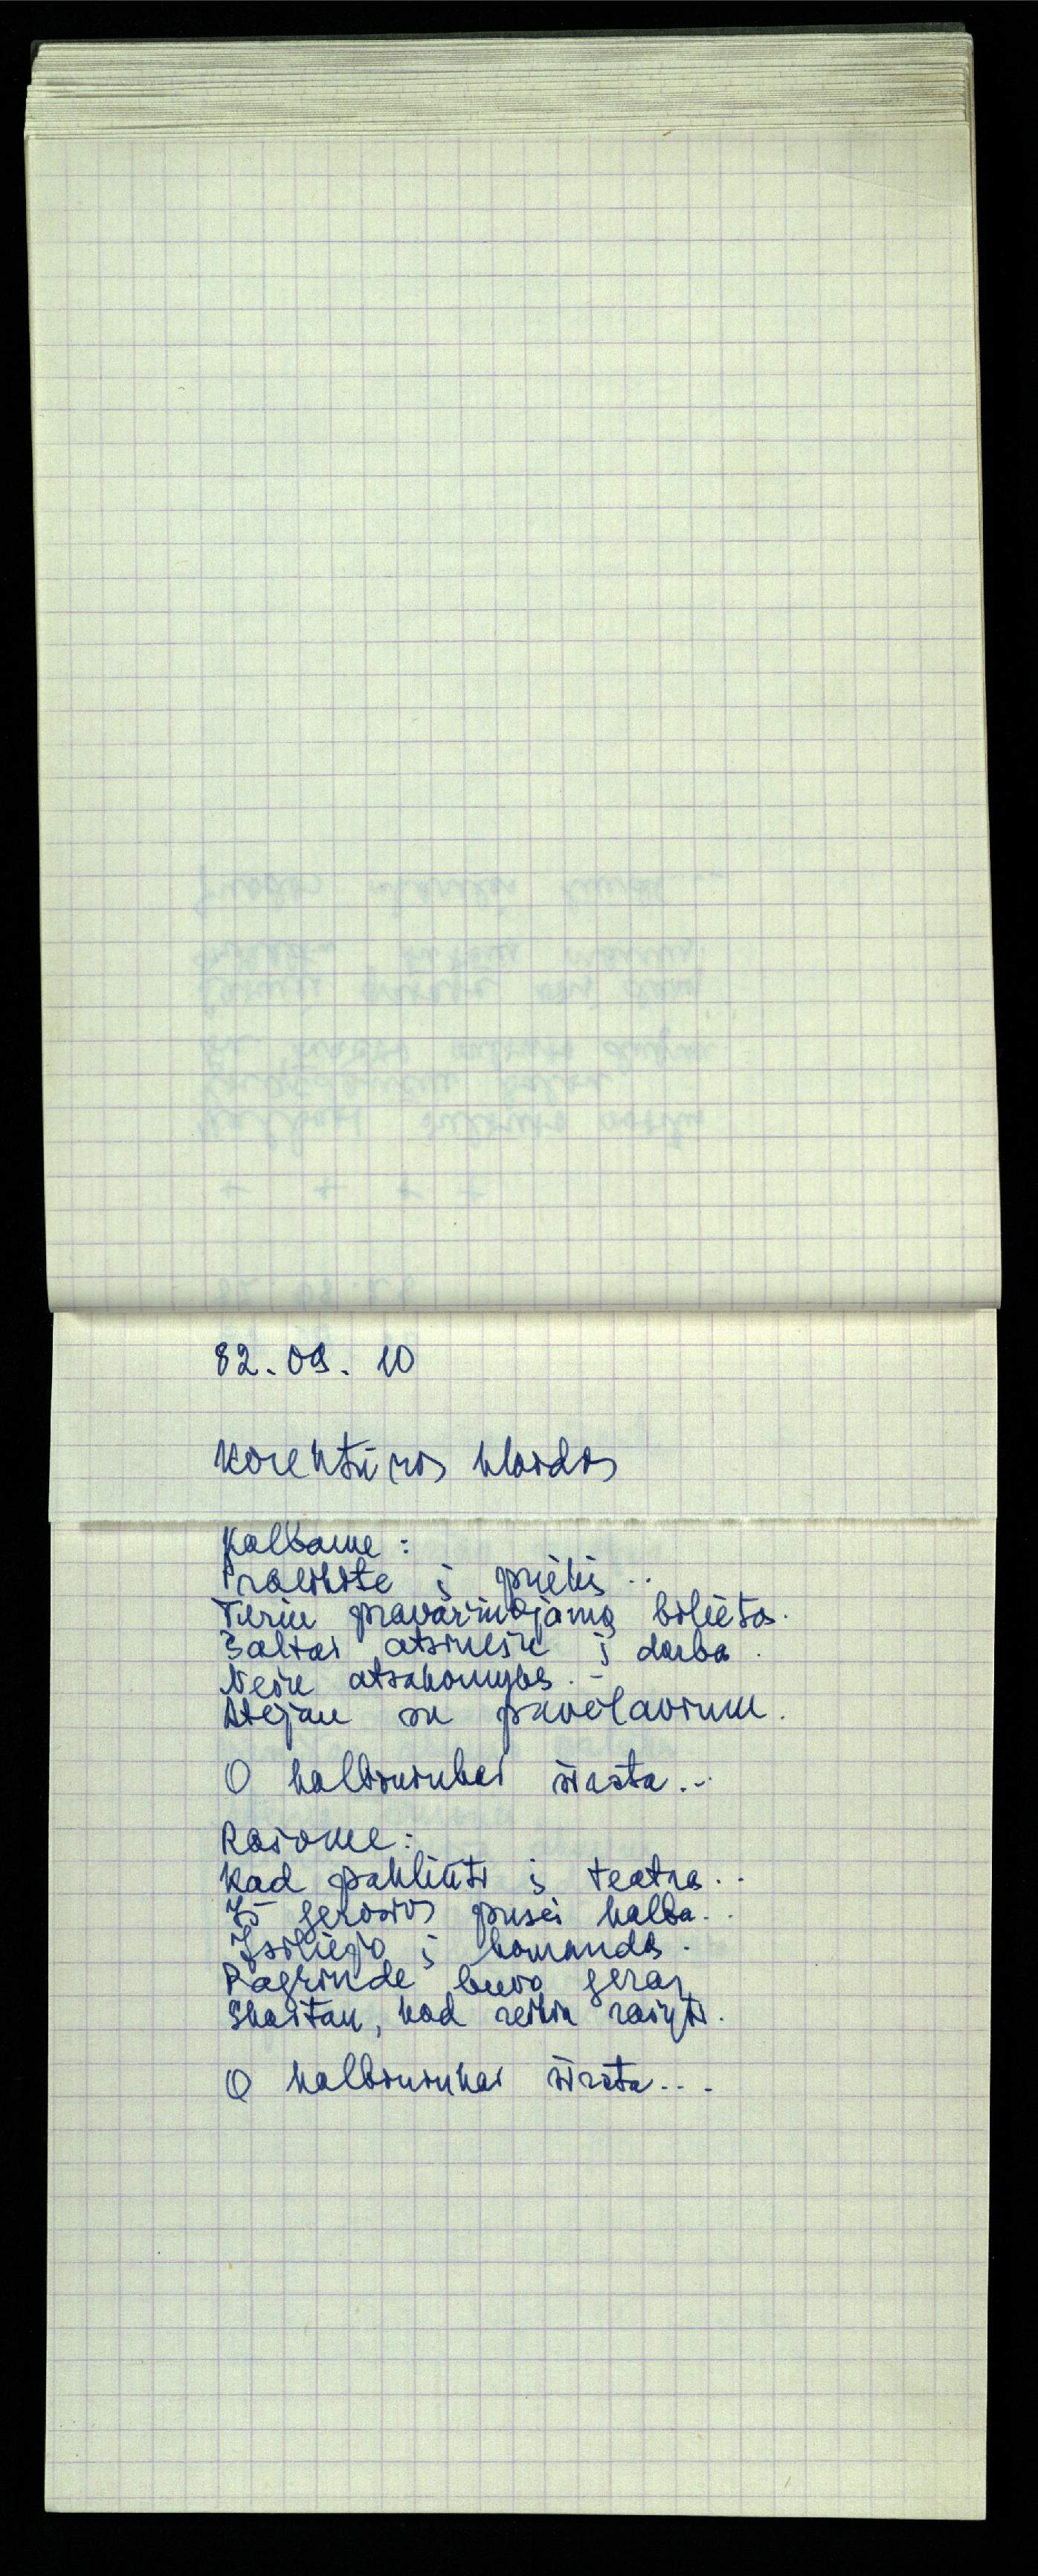 82.09.10
Korektūros klaidos
Kalbame:
Praeikite į priekį..
Turiu pravažiuojamą bilietą.
Šaltai atsinešu į darbą.
Nešu atsakomybę.-
Atėjau su pavėlavimu.
O kalbininkai širsta...
Rašome:
Kad pakliūti į teatrą..
Iš gerosios pusės kalba..
Įsiliejo į komandą.
Pagrinde buvo geras
Skaitau, kad reikia rašyti.
O kalbininkai širsta...